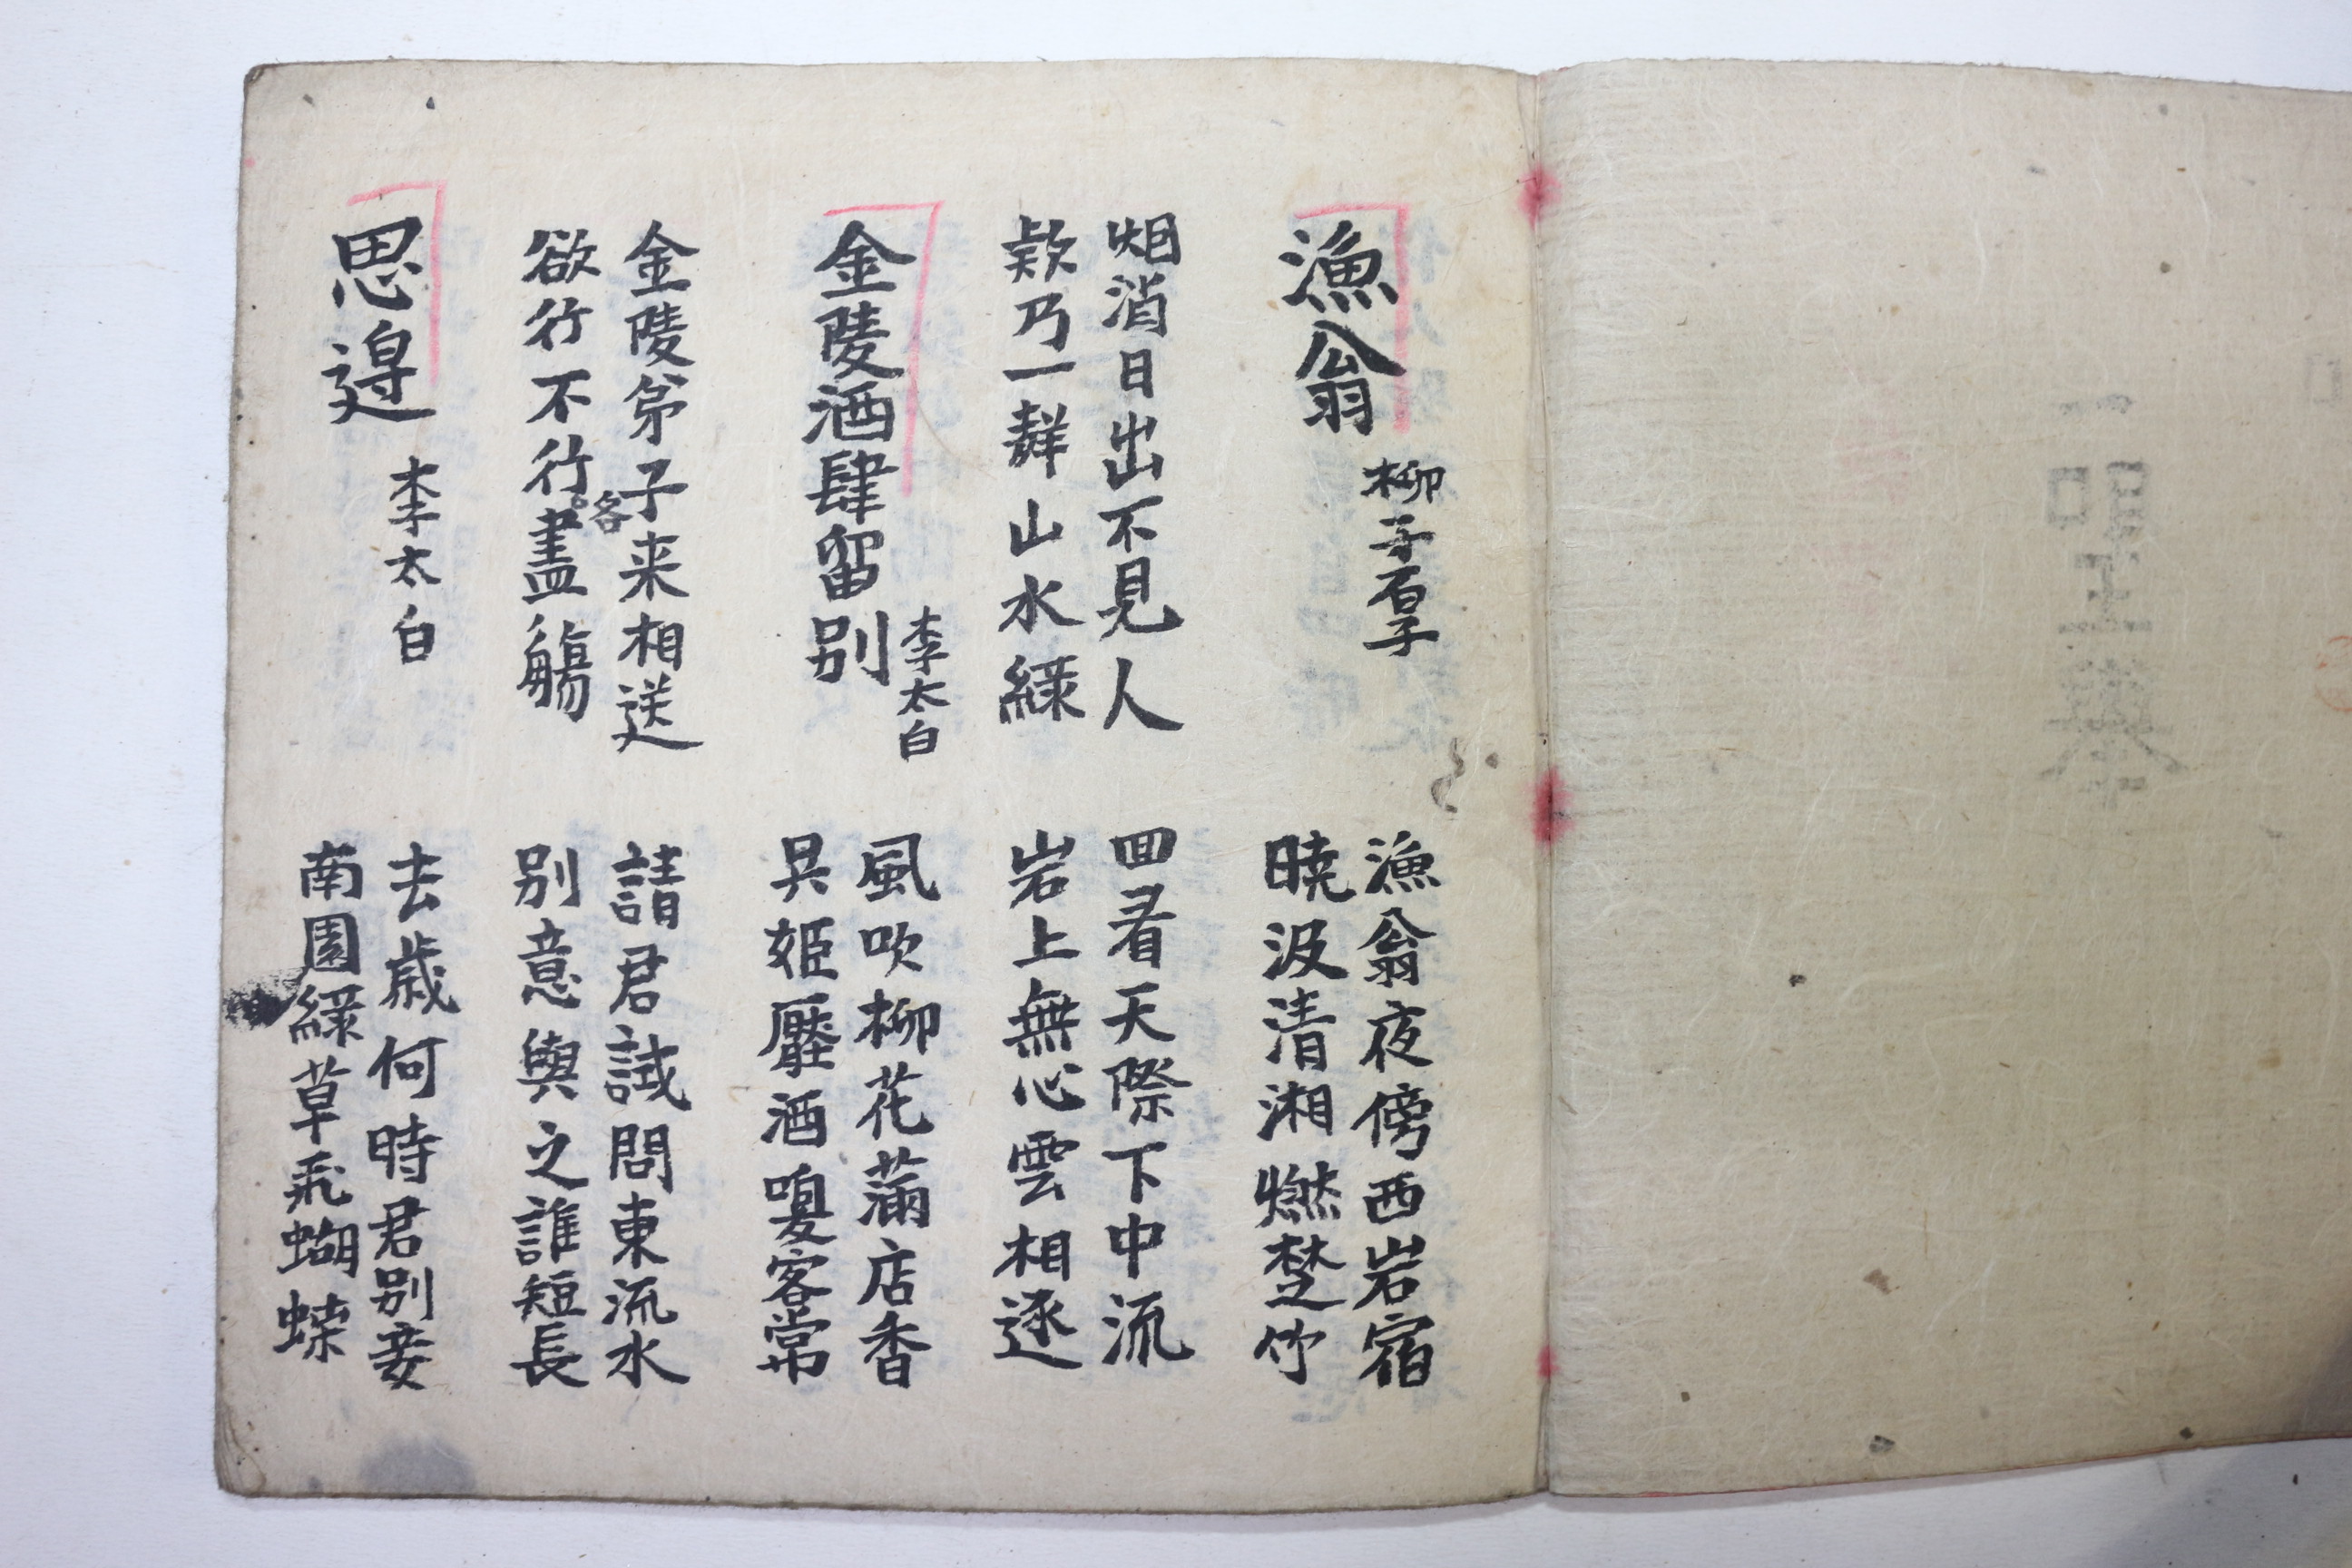 漁翁
柳子厚
漁翁夜傍西岩宿
暁汲清湘燃楚竹
烟消日出不見人
欵乃一聲山水緑
回看天際下中流
岩上無心雲相逐
金陵酒肆留別
李太白
風吹柳花滿店香
吳姬壓酒喚客常
金陵弟子来相送
欲行不行各盡觴
請君試問東流水
別意與之誰短長
思邉
李太白
去歳何時君別妾
南園緑草飛蝴蝶